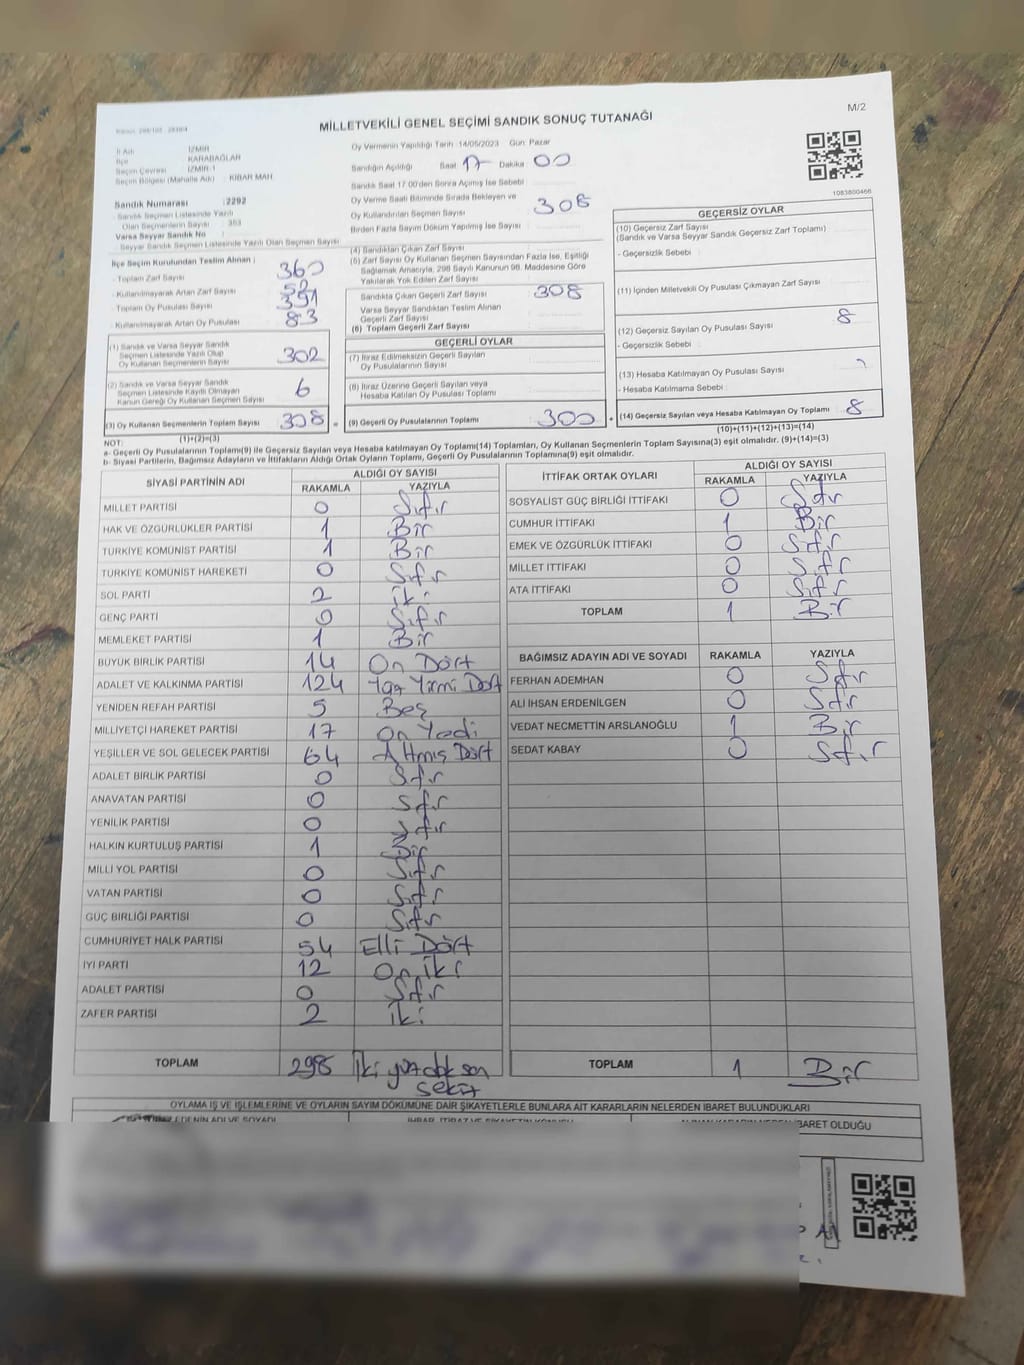 M/2
MİLLETVEKİLİ GENEL SEÇİMİ SANDIK SONUÇ TUTANAĞI
1083800466
İl Adı : İZMİR
İlçe : KARABAĞLAR
Seçim Çevresi : İZMİR-1
Seçim Bölgesi (Mahalle Adı) : KİBAR MAH.
Sandık Numarası : 2292
Sandık Seçmen Listesinde Yazılı
Olan Seçmenlerin Sayısı : 353
Varsa Seyyar Sandık No :
Seyyar Sandık Seçmen Listesinde Yazılı Olan Seçmen Sayısı
Oy Vermenin Yapıldığı Tarih :14/05/2023 Gün: Pazar
Sandığın Açıldığı Saat 17 Dakika 00
Sandık Saat 17:00'den Sonra Açılmış İse Sebebi
Oy Verme Saati Bitiminde Sırada Bekleyen ve
Oy Kullandırılan Seçmen Sayısı 308
Birden Fazla Sayım Döküm Yapılmış İse Sayısı
İlçe Seçim Kurulundan Teslim Alınan ;
- Toplam Zarf Sayısı 360
- Kullanılmayarak Artan Zarf Sayısı 52
- Toplam Oy Pusulası Sayısı 391
- Kullanılmayarak Artan Oy Pusulası 83
(1) Sandık ve Varsa Seyyar Sandık
Seçmen Listesinde Yazılı Olup
Oy Kullanan Seçmenlerin Sayısı 302
(2) Sandık ve Varsa Seyyar Sandık
Seçmen Listesinde Kayıtlı Olmayan
Kanun Gereği Oy Kullanan Seçmen Sayısı 6
(3) Oy Kullanan Seçmenlerin Toplam Sayısı 308
(1)+(2)=(3)
(4) Sandıktan Çıkan Zarf Sayısı
(5) Zarf Sayısı Oy Kullanan Seçmen Sayısından Fazla İse, Eşitliği
Sağlamak Amacıyla, 298 Sayılı Kanunun 98. Maddesine Göre
Yakılarak Yok Edilen Zarf Sayısı
Sandıkta Çıkan Geçerli Zarf Sayısı 308
Varsa Seyyar Sandıktan Teslim Alınan
Geçerli Zarf Sayısı
(6) Toplam Geçerli Zarf Sayısı
GEÇERLİ OYLAR
(7) İtiraz Edilmeksizin Geçerli Sayılan
Oy Pusulalarının Sayısı
(8) İtiraz Üzerine Geçerli Sayılan veya
Hesaba Katılan Oy Pusulası Toplamı
(9) Geçerli Oy Pusulalarının Toplamı 300
GEÇERSİZ OYLAR
(10) Geçersiz Zarf Sayısı
(Sandık ve Varsa Seyyar Sandık Geçersiz Zarf Toplamı)
- Geçersizlik Sebebi :
(11) İçinden Milletvekili Oy Pusulası Çıkmayan Zarf Sayısı
(12) Geçersiz Sayılan Oy Pusulası Sayısı 8
- Geçersizlik Sebebi :
(13) Hesaba Katılmayan Oy Pusulası Sayısı
- Hesaba Katılmama Sebebi :
(14) Geçersiz Sayılan veya Hesaba Katılmayan Oy Toplamı 8
(10)+(11)+(12)+(13)=(14)
NOT:
a- Geçerli Oy Pusulalarının Toplamı(9) ile Geçersiz Sayılan veya Hesaba katılmayan Oy Toplamı(14) Toplamları, Oy Kullanan Seçmenlerin Toplam Sayısına(3) eşit olmalıdır. (9)+(14)=(3)
b- Siyasi Partilerin, Bağımsız Adayların ve İttifakların Aldığı Ortak Oyların Toplamı, Geçerli Oy Pusulalarının Toplamına(9) eşit olmalıdır.
SİYASİ PARTİNİN ADI ALDIĞI OY SAYISI
RAKAMLA YAZIYLA
MİLLET PARTİSİ 0 Sıfır
HAK VE ÖZGÜRLÜKLER PARTİSİ 1 Bir
TÜRKİYE KOMÜNİST PARTİSİ 1 Bir
TÜRKİYE KOMÜNİST HAREKETİ 0 Sıfır
SOL PARTİ 2 iki
GENÇ PARTİ 0 Sıfır
MEMLEKET PARTİSİ 1 Bir
BÜYÜK BİRLİK PARTİSİ 14 On Dört
ADALET VE KALKINMA PARTİSİ 124 Yüz Yirmi Dört
YENİDEN REFAH PARTİSİ 5 Beş
MİLLİYETÇİ HAREKET PARTİSİ 17 On Yedi
YEŞİLLER VE SOL GELECEK PARTİSİ 64 Altmış Dört
ADALET BİRLİK PARTİSİ 0 Sıfır
ANAVATAN PARTİSİ 0 Sıfır
YENİLİK PARTİSİ 0 Sıfır
HALKIN KURTULUŞ PARTİSİ 1 Bir
MİLLİ YOL PARTİSİ 0 Sıfır
VATAN PARTİSİ 0 Sıfır
GÜÇ BİRLİĞİ PARTİSİ 0 Sıfır
CUMHURİYET HALK PARTİSİ 54 Elli Dört
İYİ PARTİ 12 On iki
ADALET PARTİSİ 0 Sıfır
ZAFER PARTİSİ 2 iki
TOPLAM 298 iki yüz doksan
sekiz
İTTİFAK ORTAK OYLARI ALDIĞI OY SAYISI
RAKAMLA YAZIYLA
SOSYALİST GÜÇ BİRLİĞİ İTTİFAKI 0 Sıfır
CUMHUR İTTİFAKI 1 Bir
EMEK VE ÖZGÜRLÜK İTTİFAKI 0 Sıfır
MİLLET İTTİFAKI 0 Sıfır
ATA İTTİFAKI 0 Sıfır
TOPLAM 1 Bir
BAĞIMSIZ ADAYIN ADI VE SOYADI RAKAMLA YAZIYLA
FERHAN ADEMHAN 0 Sıfır
ALİ İHSAN ERDENİLGEN 0 Sıfır
VEDAT NECMETTİN ARSLANOĞLU 1 Bir
SEDAT KABAY 0 Sıfır
TOPLAM 1 Bir
OYLAMA İŞ VE İŞLEMLERİNE VE OYLARIN SAYIM DÖKÜMÜNE DAİR ŞİKAYETLERLE BUNLARA AİT KARARLARIN NELERDEN İBARET BULUNDUKLARI
EDENİN ADI VE SOYADI
BARET OLDUĞU